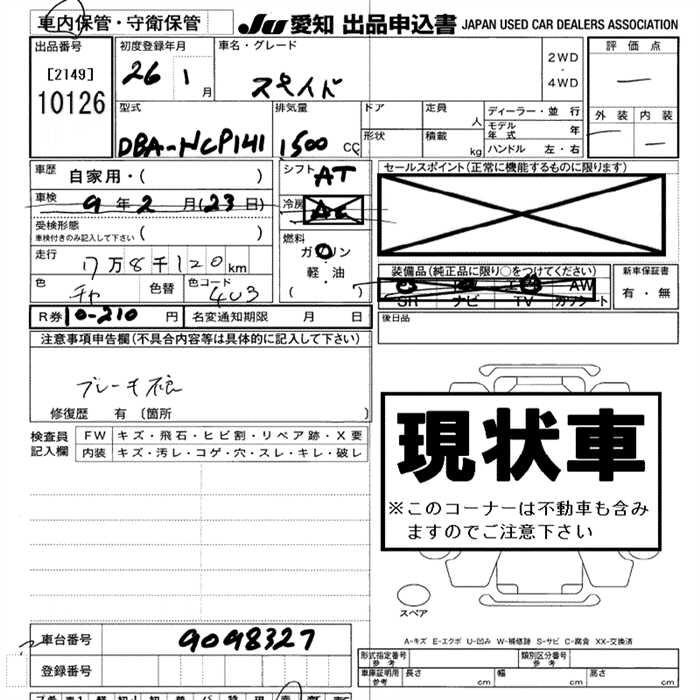 車内保管・守衛保管 JU 愛知 出品申込書 JAPAN USED CAR DEALERS ASSOCIATION
出品番号 初度登録年月 車名・グレード 2WD・4WD 評価点
[2149]
10126
26 1月 スペイド
型式 排気量 ドア 定員 人 ディーラー・並行 外装 内装
DBA-NCP141 1500 CC 形状 積載 kg モデル年式 年
ハンドル 左・右
車歴 自家用・( ) シフト AT セールスポイント(正常に機能するものに限ります)
車検 9年2月(23日) 冷房 AC
受検形態 ( )
車検付きのみ記入して下さい
燃料 ガソリン・軽油 ( )
走行 17万8千120km
装備品(純正品に限り○をつけてください) 新車保証書
色 チャ 色替 色コード 4U3
AW
SR ナビ TV カワシート 有・無
R券 10-210 円 名変通知期限 月 日 後日品
注意事項申告欄(不具合内容等は具体的に記入して下さい)
修復歴 有〔箇所 〕
検査員記入欄 FW キズ・飛石・ヒビ割・リペア跡・X要
内装 キズ・汚レ・コゲ・穴・スレ・キレ・破レ
現状車
※このコーナーは不動車も含み
ますのでご注意下さい
スペア
A-キズ E-エクボ U-凹み W-補修跡 S-サビ C-腐食 XX-交換済
車台番号 9098327
型式指定番号 参考 類別区分番号 参考
登録番号 車庫証明用 参考 長さ cm 幅 cm 高さ cm